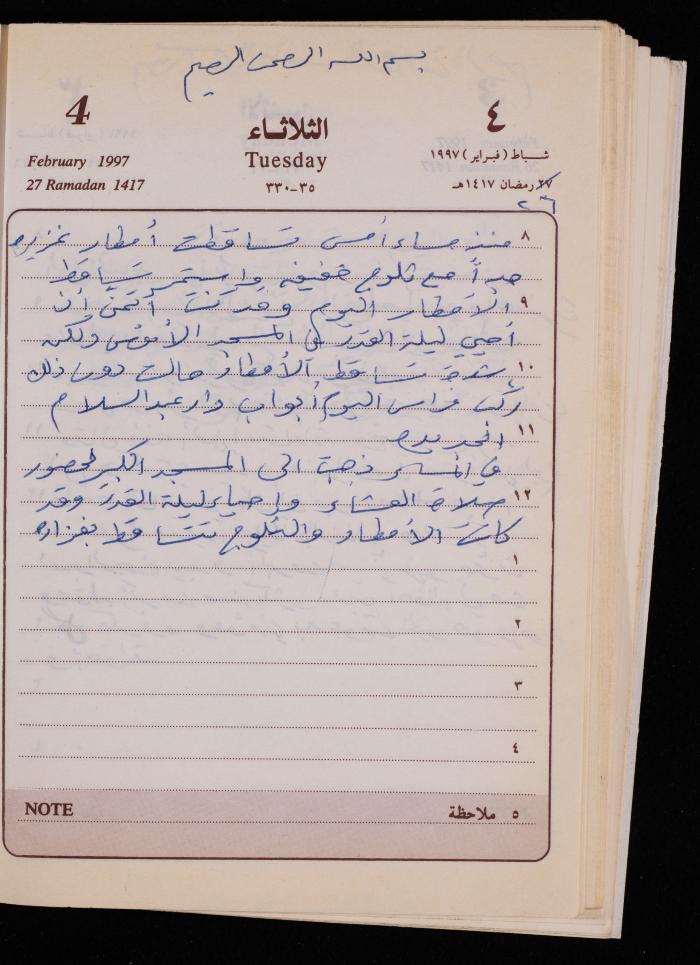 بسم الله الرحمن الرحيم
4
٤
الثلاثاء
February 1997
Tuesday
شباط (فبراير) ١٩٩٧
27 Ramadan 1417
٣٥-٣٣٠
٢٧ رمضان ١٤١٧هـ
٢٦
٨ منذ مساء أمس تساقطت أمطار غزيره
جداً مع ثلوج خفيفه واستمر تساقط
٩ الأمطار اليوم وقد كنت أتمنى أن
أحيي ليلة القدر في المسجد الأقصى ولكن
١٠ شدة تساقط الأمطار حالت دون ذلك
ركب فراس اليوم أبواب دار عبد السلام
١١ الحديده
في المساء ذهبت الى المسجد الكبير لحضور
١٢ صلاة العشاء وإحياء ليلة القدر وقد
كانت الأمطار والثلوج تتساقط بغزاره
١
٢
٣
٤
NOTE
٥ ملاحظة